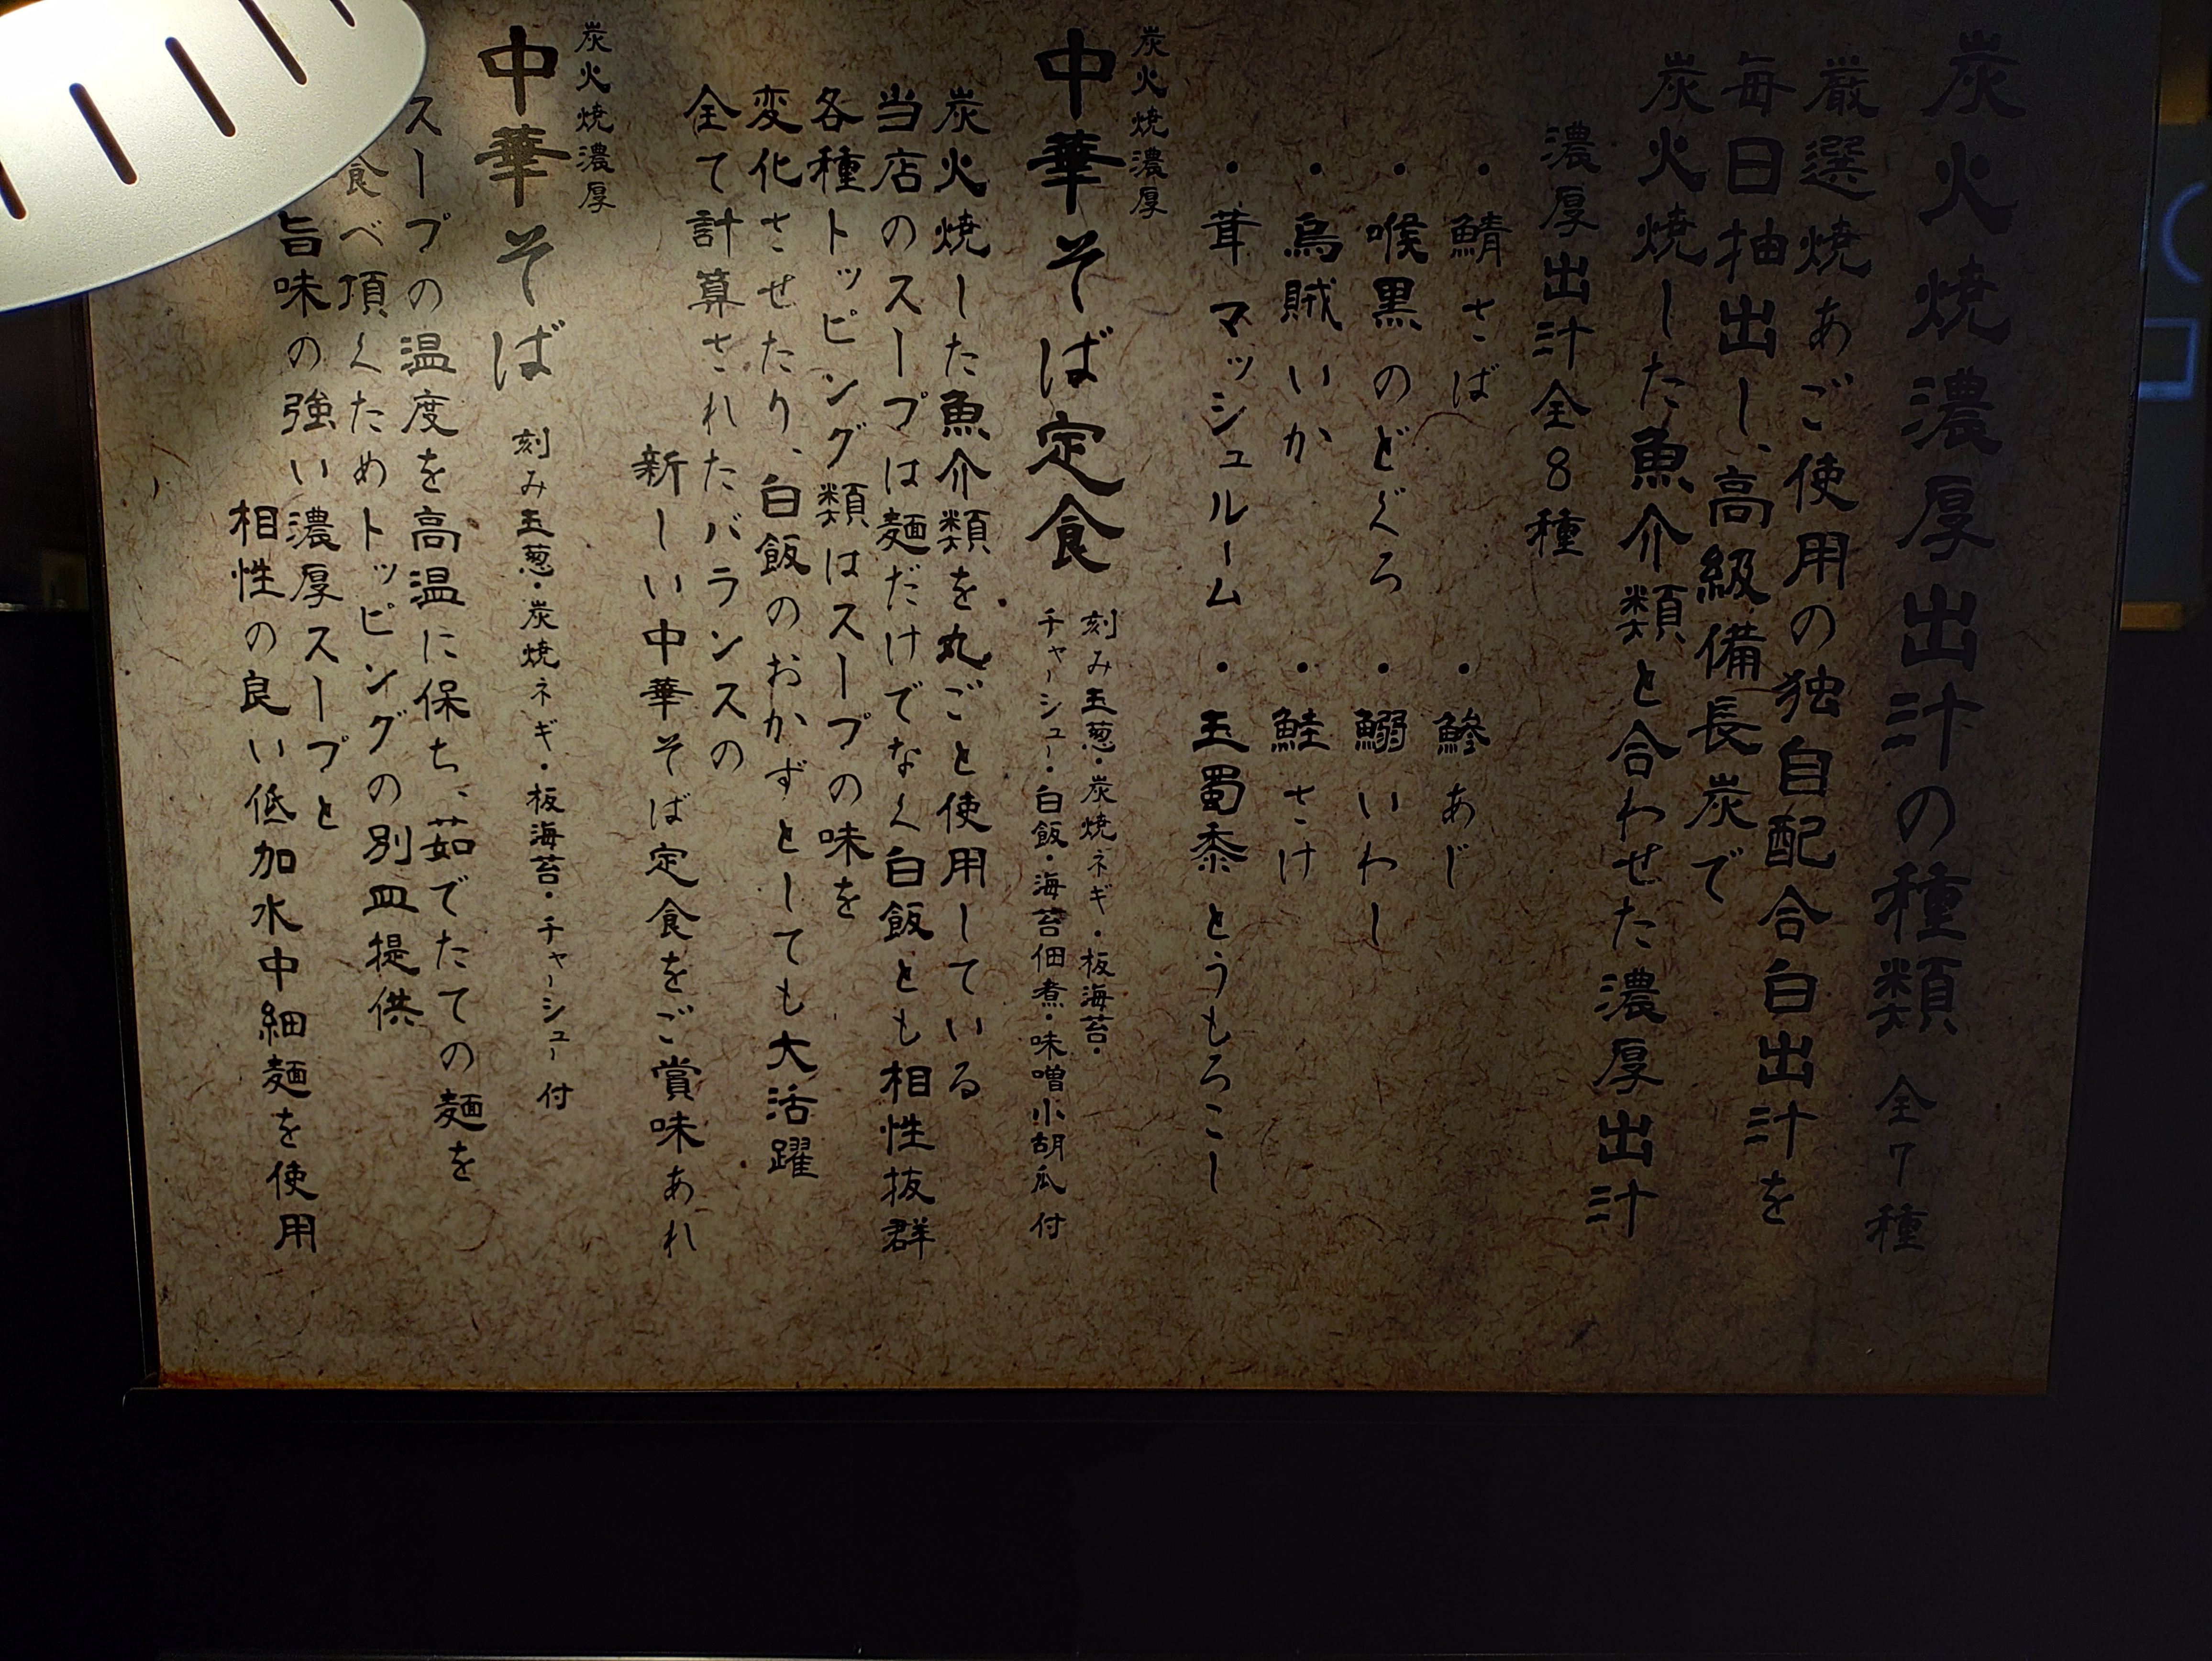 炭火焼濃厚出汁の種類 全7種
厳選焼あご使用の独自配合白出汁を
毎日抽出し、高級備長炭で
炭火焼した魚介類と合わせた濃厚出汁
濃厚出汁全8種
・鯖さば ・鯵あじ
・喉黒のどぐろ ・鰯いわし
・烏賊いか ・鮭さけ
・茸マッシュルーム ・玉蜀黍とうもろこし
炭火焼濃厚
中華そば定食
刻み玉葱・炭焼ネギ・板海苔・
チャーシュー・白飯・海苔佃煮・味噌小胡瓜 付
炭火焼した魚介類を丸ごと使用している
当店のスープは麺だけでなく白飯とも相性抜群
各種トッピング類はスープの味を
変化させたり、白飯のおかずとしても大活躍
全て計算されたバランスの
新しい中華そば定食をご賞味あれ
炭火焼濃厚
中華そば
刻み玉葱・炭焼ネギ・板海苔・チャーシュー 付
スープの温度を高温に保ち、茹でたての麺を
食べ頂くためトッピングの別皿提供
旨味の強い濃厚スープと
相性の良い低加水中細麺を使用